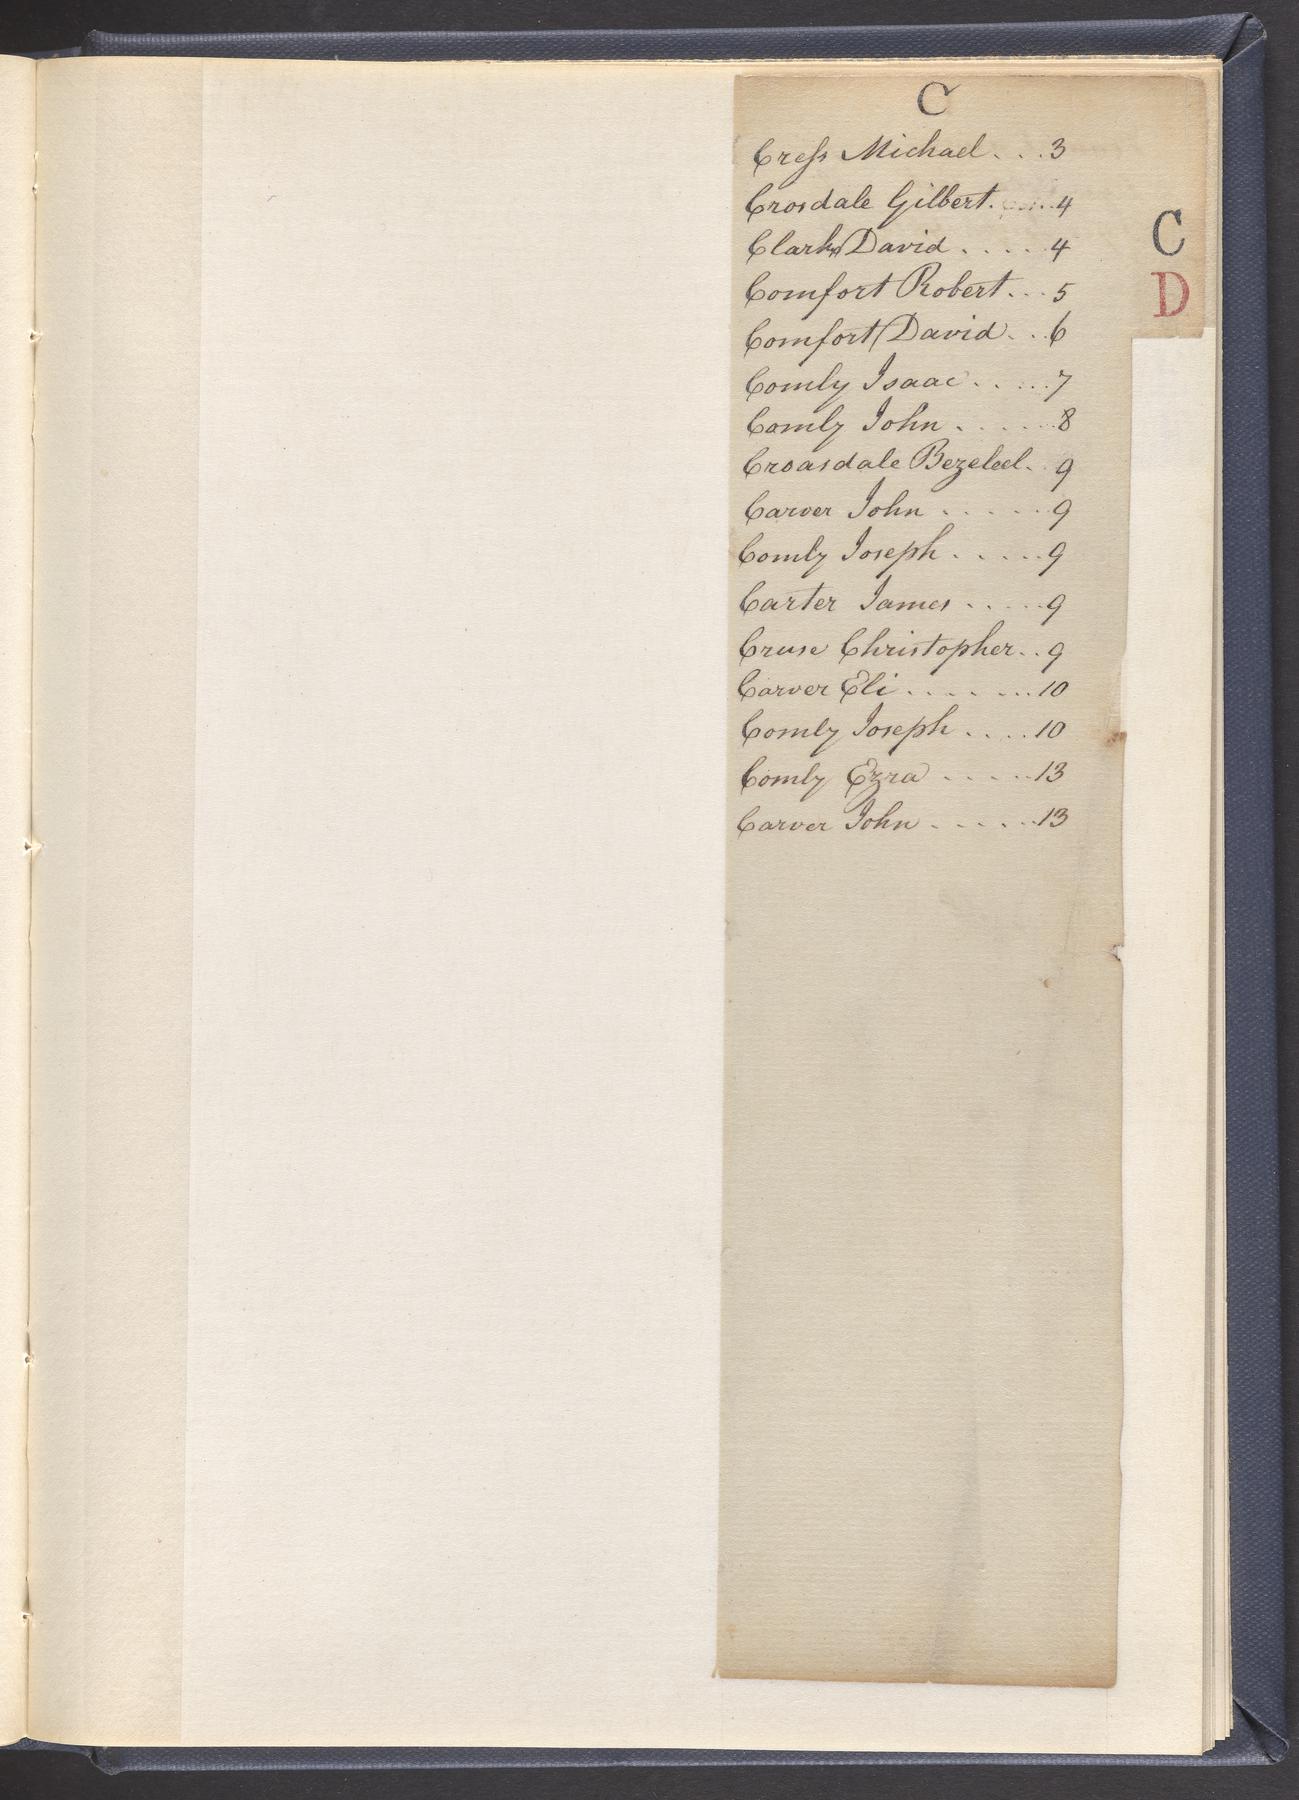 C
Creſs Michael. . . 3
Crosdale Gilbert. . . . 4
Clark David . . . . 4
Comfort Robert. . . 5
Comfort David. . . 6
Comly Isaac . . . . . 7
Comly John . . . . . . 8
Croasdale Bezeleel. 9
Carver John . . . . . . 9
Comly Joseph . . . . . 9
Carter James . . . . . 9
Cruse Christopher. . 9
Carver Eli . . . . . . . 10
Comly Joseph . . . . 10
Comly Ezra . . . . . 13
Carver John . . . . . . 13
C
D